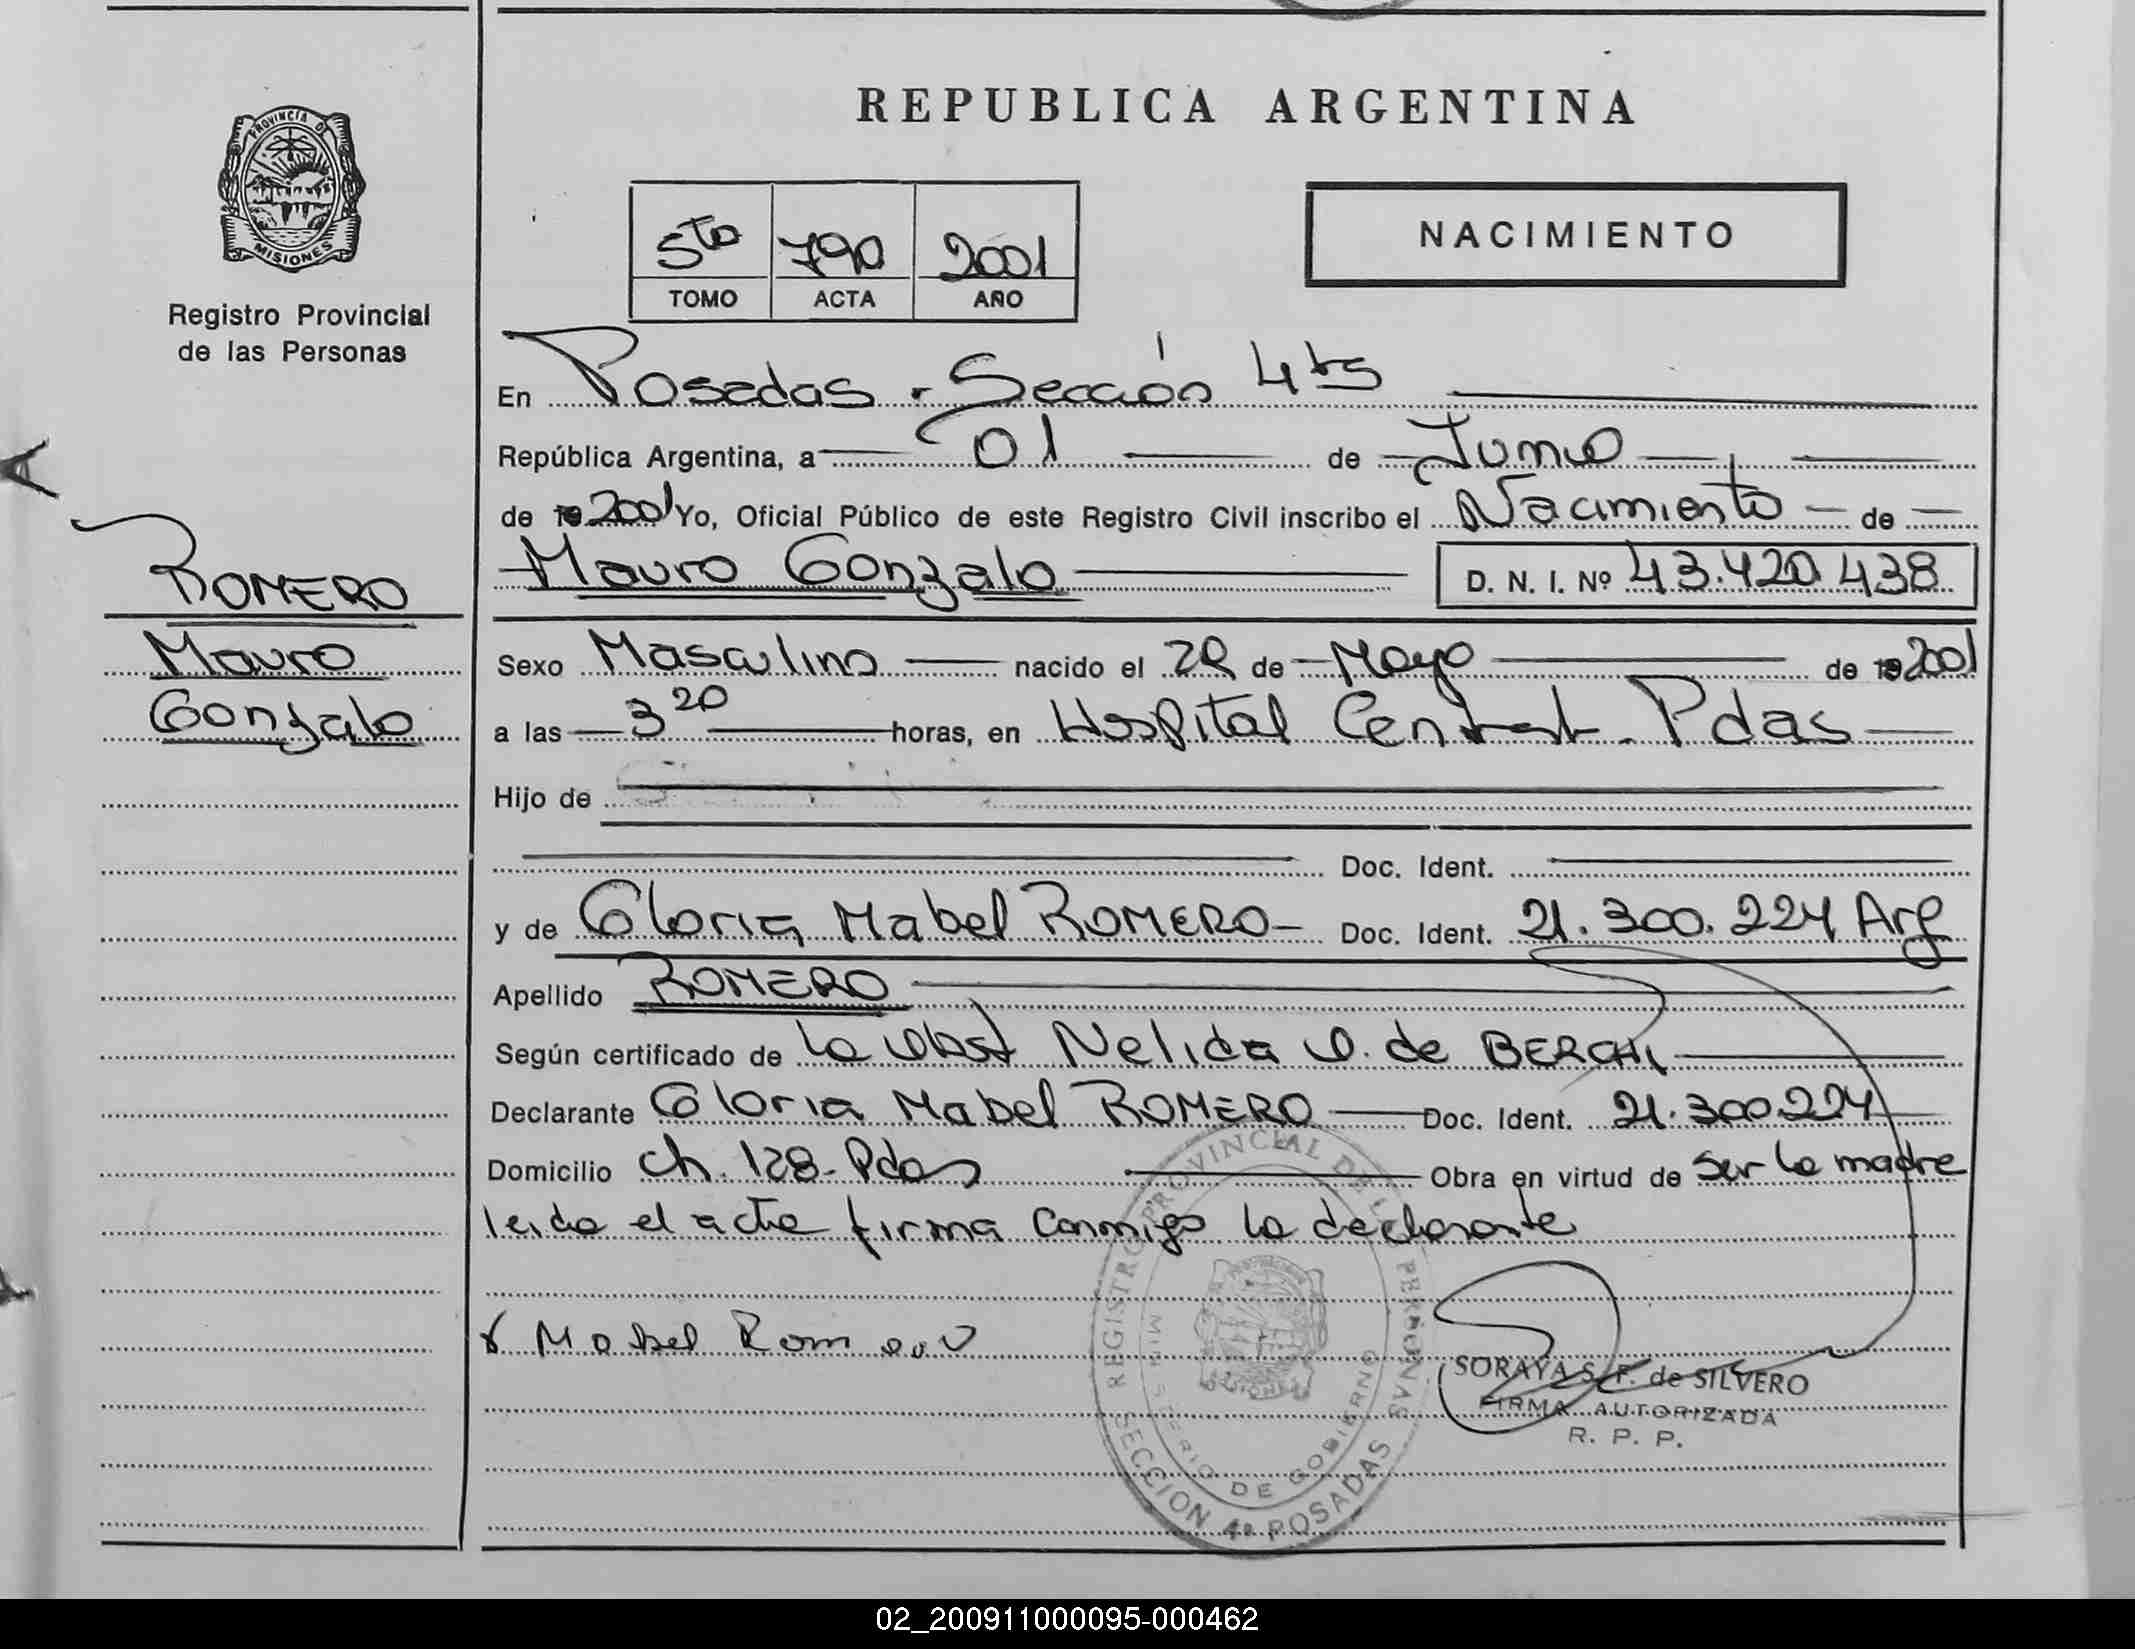 REPUBLICA ARGENTINA
PROVINCIA D
MISIONES
Registro Provincial
de las Personas
NACIMIENTO
5to 790 2001
TOMO ACTA AÑO
En Posadas - Sección 4ta
República Argentina, a 01 de Junio
de 19 2001 Yo, Oficial Público de este Registro Civil inscribo el Nacimiento de
Mauro Gonzalo D. N. I. Nº 43.420.438
ROMERO
Mauro
Gonzalo
Sexo Masculino nacido el de Mayo de 19 2001
a las 3 20 horas, en Hospital Central - Pdas
Hijo de
Doc. Ident.
y de Gloria Mabel ROMERO Doc. Ident. 21.300.224 Arg
Apellido ROMERO
Según certificado de la Obst Nelida O. de
Declarante Gloria Mabel ROMERO Doc. Ident. 21.300.224
Domicilio ch. 128 - Pdas Obra en virtud de ser la madre
leida el acta firma conmigo la declarante
x Mabel Romero
REGISTRO PROVINCIAL DE LAS PERSONAS
MINISTERIO DE GOBIERNO
MISIONES
SECCION 4ª POSADAS
SORAYA S. F. de SILVERO
FIRMA AUTORIZADA
R. P. P.
02_200911000095-000462